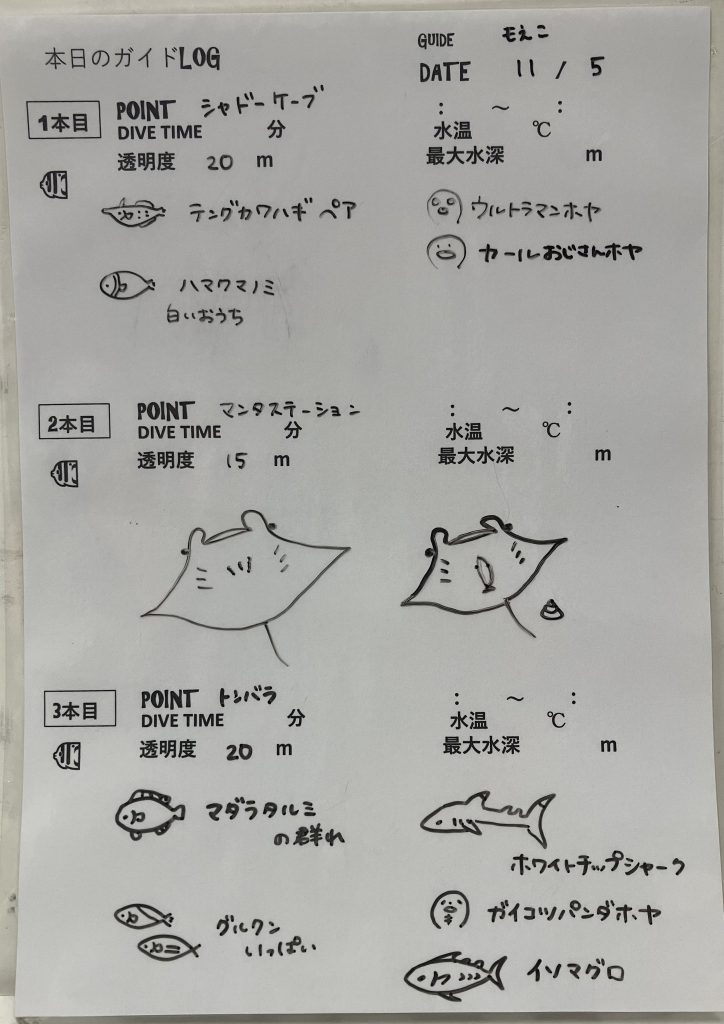 本日のガイドLOG
GUIDE もえこ
DATE 11 / 5
1本目
POINT シャドーケーブ
DIVE TIME 分
透明度 20 m
: ～ :
水温 ℃
最大水深 m
テングカワハギ ペア
ウルトラマンホヤ
カールおじさんホヤ
ハマクマノミ
白いおうち
2本目
POINT マンタステーション
DIVE TIME 分
透明度 15 m
: ～ :
水温 ℃
最大水深 m
3本目
POINT トンバラ
DIVE TIME 分
透明度 20 m
: ～ :
水温 ℃
最大水深 m
マダラタルミ
の群れ
ホワイトチップシャーク
グルクン
いっぱい
ガイコツパンダホヤ
イソマグロ